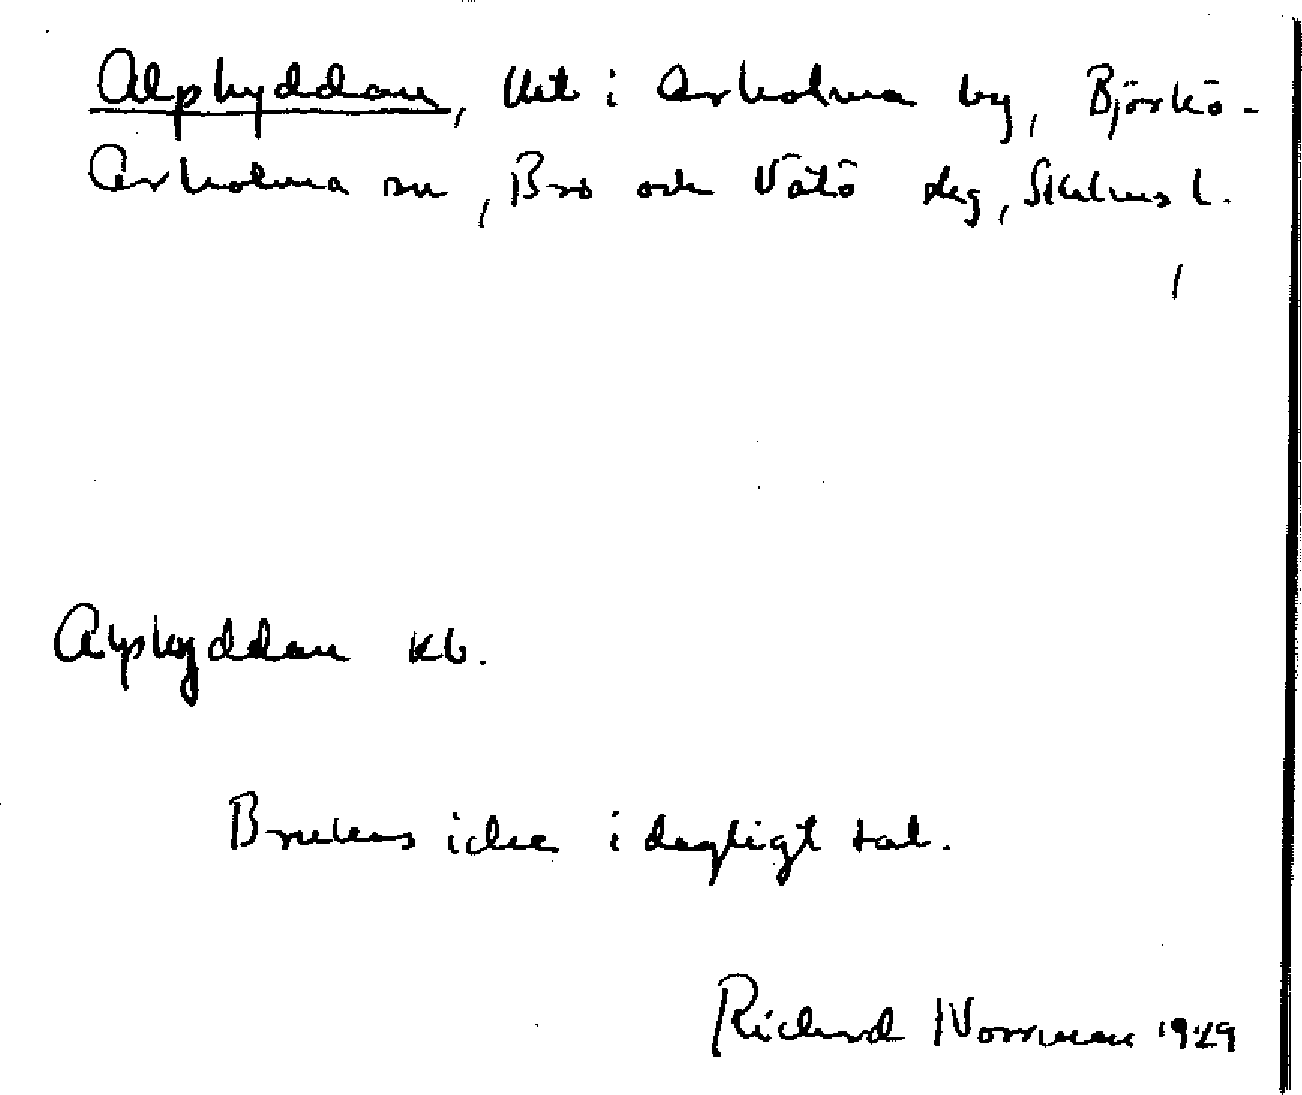 Alphyddan, lht i Arholma by, Björkö-
Arholma sn, Bro och Vätö skg, Sthlms l.
Alphyddan kb.
Brukas icke i dagligt tal.
Richard Norrman 1929